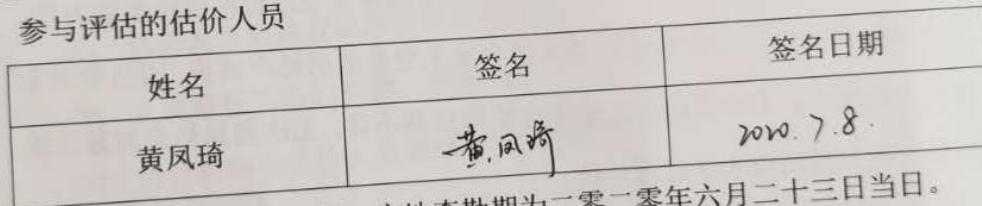 参与评估的估价人员
姓名 签名 签名日期
黄凤琦 黄凤琦 2020.7.8.
期为二零二零年六月二十三日当日。